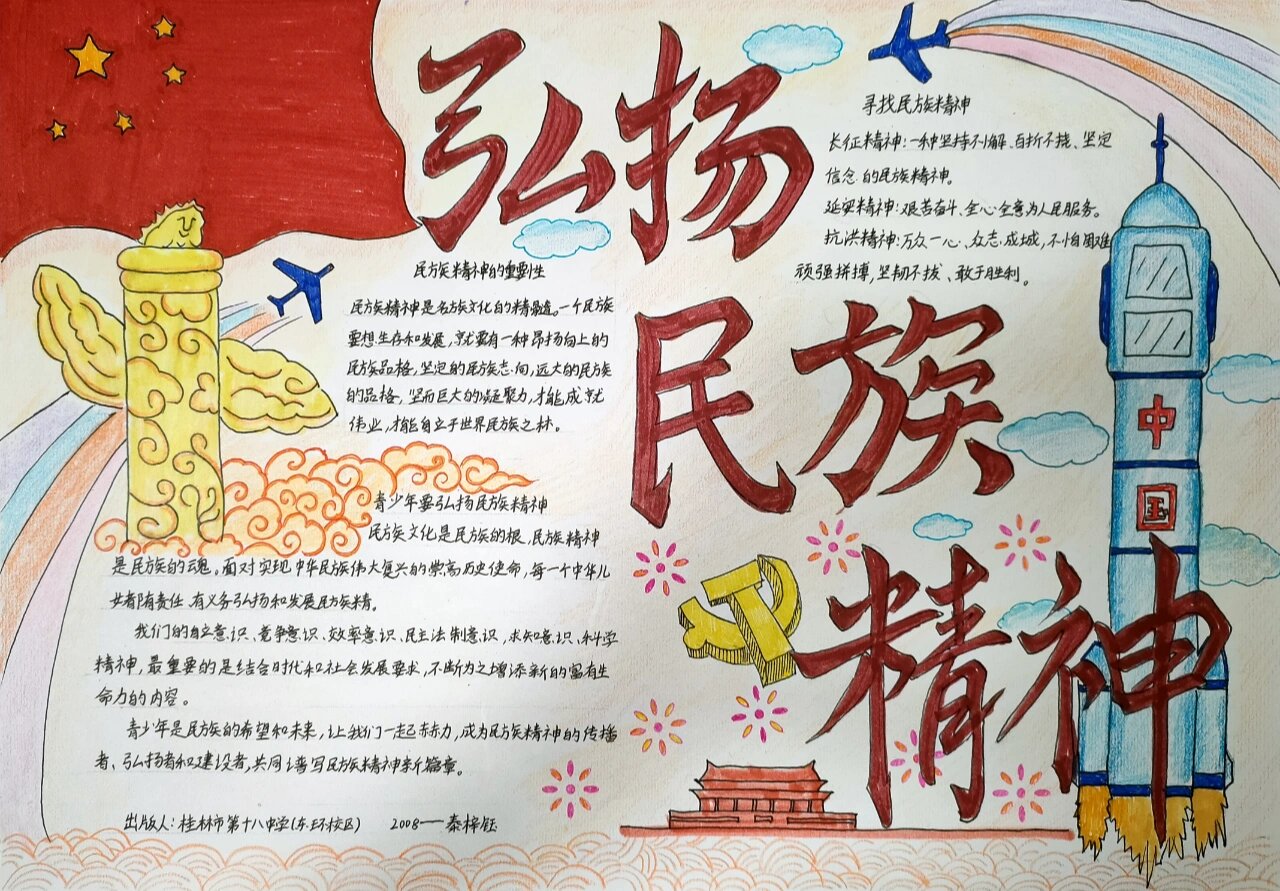 弘扬
民族
精神
寻找民族精神
长征精神:一种坚持不懈、百折不挠、坚定
信念的民族精神。
延安精神:艰苦奋斗、全心全意为人民服务。
抗洪精神:万众一心、众志成城,不怕困难
顽强拼搏,坚韧不拔、敢于胜利。
民族精神的重要性
民族精神是名族文化的精髓。一个民族
要想生存和发展,就要有一种昂扬向上的
民族品格,坚定的民族志向,远大的民族
的品格,坚而巨大的凝聚力,才能成就
伟业,才能自立于世界民族之林。
青少年要弘扬民族精神
民族文化是民族的根,民族精神
是民族的魂。面对实现中华民族伟大复兴的崇高历史使命,每一个中华儿
女都有责任、有义务弘扬和发展民族精。
我们的自立意识、竞争意识、效率意识、民主法制意识,求知意识、科学
精神,最重要的是结合时代和社会发展要求,不断为之增添新的富有生
命力的内容。
青少年是民族的希望和未来,让我们一起赤力,成为民族精神的传播
者、弘扬者和建设者,共同谱写民族精神新篇章。
出版人:桂林市第十八中学(东环校区) 2008——秦梓钰
中
国